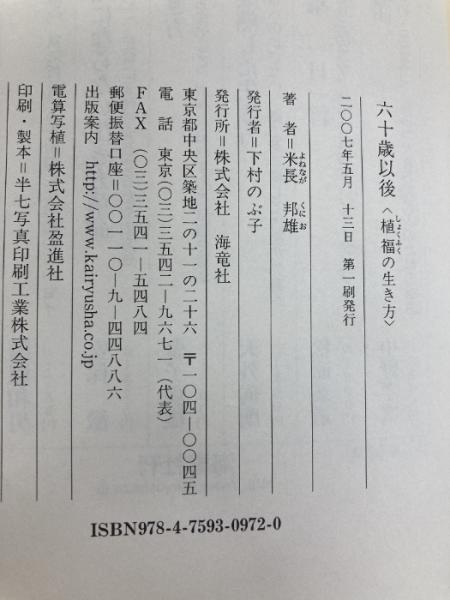 六十歳以後〈植福の生き方〉
しょくふく
二〇〇七年五月 十三日 第一刷発行
著 者=米長 邦雄
よねなが くにお
発行者=下村のぶ子
発行所=株式会社 海竜社
東京都中央区築地二の十一の二十六 〒一〇四―〇〇四五
電 話 東京(〇三)三五四二―九六七一(代表)
FAX (〇三)三五四一―五四八四
郵便振替口座=〇〇一一〇―九―四四八八六
出版案内 http://www.kairyusha.co.jp
電算写植=株式会社盈進社
印刷・製本=半七写真印刷工業株式会社
ISBN978-4-7593-0972-0